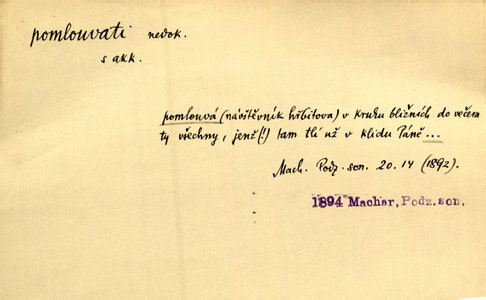 pomlouvati nedok.
s akk.
pomlouvá (návštěvník hřbitova) v kruhu bližních do večera
ty všechny, jenž(!) tam tlí už v klidu Páně ...
Mach. Podz. son. 20. 14 (1892).
1894 Machar, Podz. son.